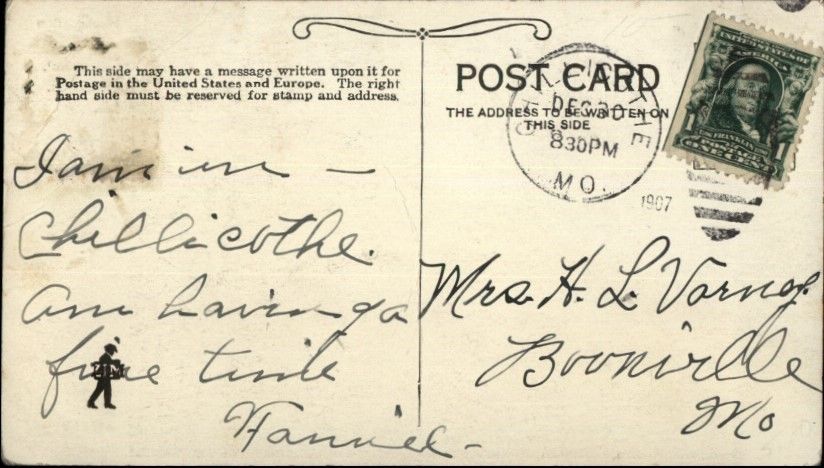 This side may have a message written upon it for
Postage in the United States and Europe. The right
hand side must be reserved for stamp and address.
I am in —
Chillicothe.
am having a
fine time
Fannie –
POST CARD
THE ADDRESS TO BE WRITTEN ON
THIS SIDE
CHILLICOTHE
DEC 30
8 30 PM
MO.
1907
Mrs. H. L.
Boonville
Mo